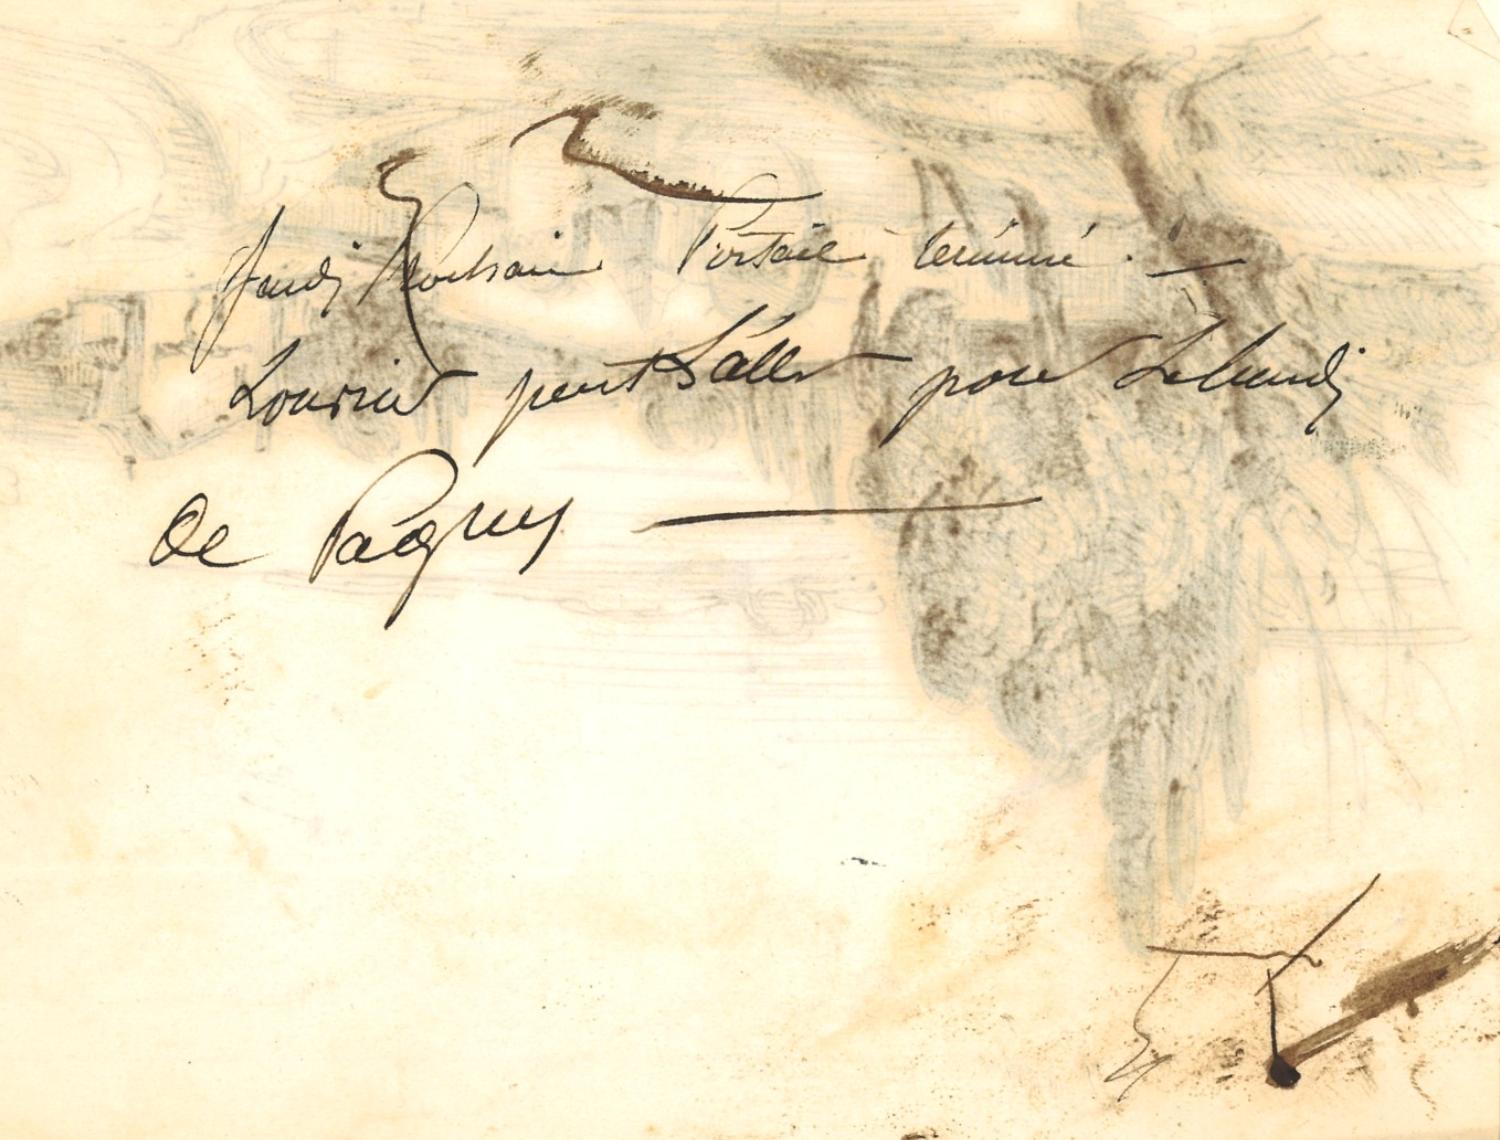 Jeudi Prochain Portail terminé. —
Louvrier peut s'aller pour Le lundi
de Paques —